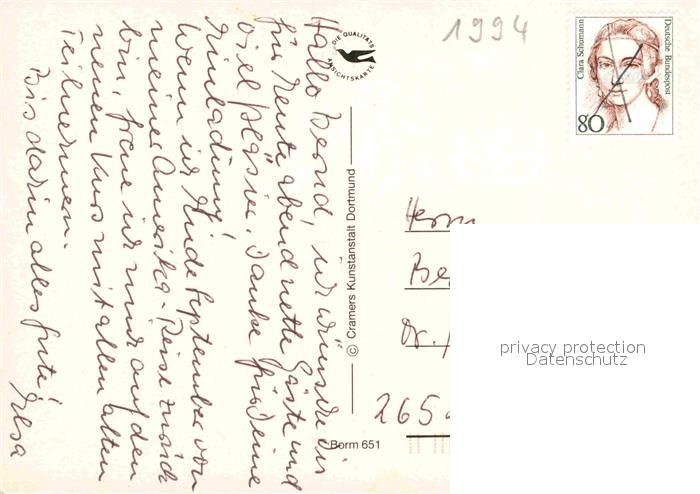 Hallo Bernd, ich wünsche dir
für heute abend nette Gäste und
viel pläsier. Danke für deine
Einladung!
Wenn ich Ende September von
meiner Amerika-Reise zurück
bin, freue ich mich auf den
neuen Kurs mit allen alten
Teilnehmern.
Bis dahin alles Gute!
Ilsa
DIE QUALITÄTS
ANSICHTSKARTE
© Cramers Kunstanstalt Dortmund
Borm 651
1994
Clara Schumann
Deutsche Bundespost
80
Herrn
Be
Dr.
265
privacy protection
Datenschutz